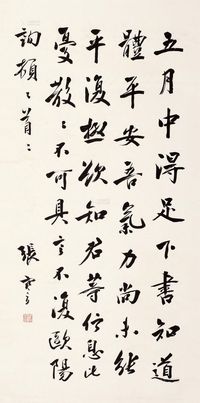 五月中得足下书知道
體平安吾氣力尚未能
平復極欲知君等信息比
憂散〻不可具言不復歐陽
詢頓〻首〻
張